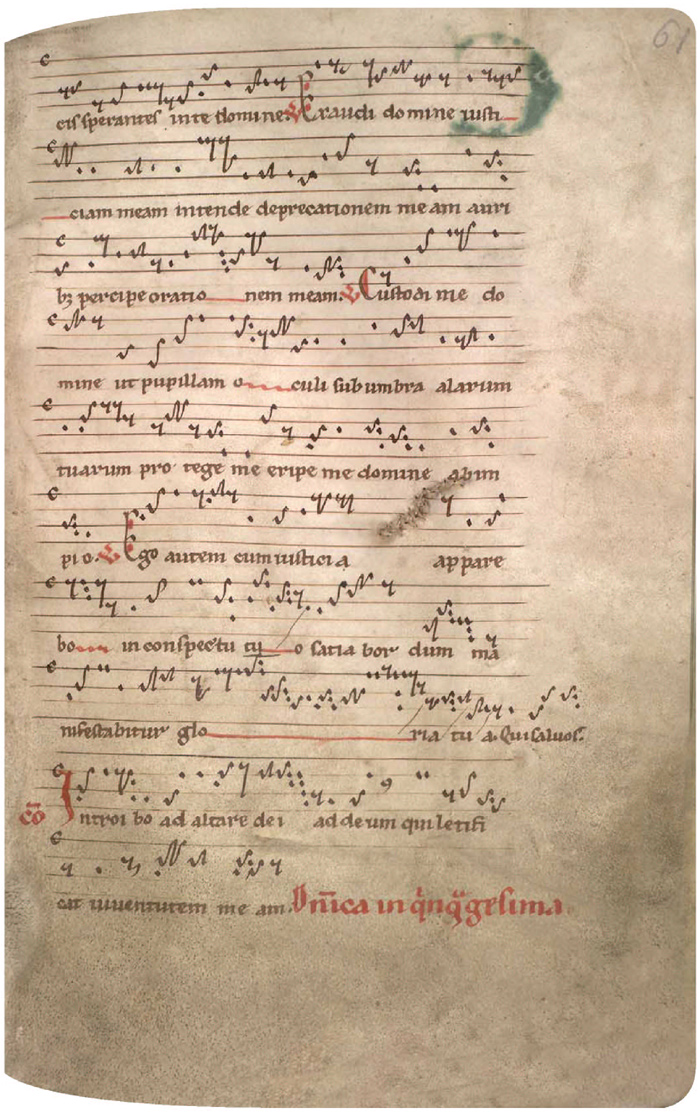 61
cis sperantes in te domine. V Exaudi domine iusti
ciam meam intende deprecationem meam auri
bꝫ percipe oratio nem meam. V Custodi me do
mine ut pupillam o culi sub umbra alarum
tuarum pro tege me eripe me domine ab im
pio. V Ego autem cum iusticia appare
bo in conspectu tu o satia bor dum ma
nifestabitur glo ria tu a. Qui saluos.
co̅ Introi bo ad altare dei ad deum qui letifi
cat iuuentutem me am. Dn̅ica in qͥnqᷓgesima